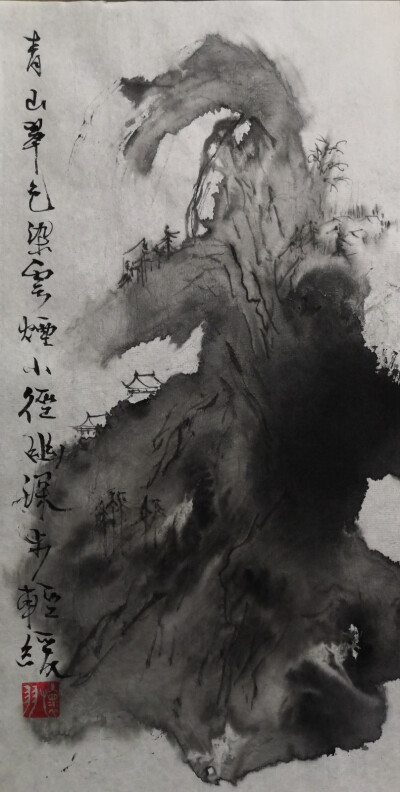 青山翠色染雲煙小徑幽深步輕緩